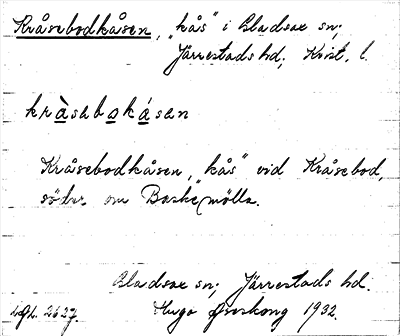 Kråsebodkåsen, "kås" i Gladsax sn;
Järrestads hd; Krist. l.
kràsabokásan
Kråsebodkåsen, "kås" vid Kråsebod,
söder om Baskemölla.
Gladsax sn; Järrestads hd.
Hugo Areskoug 1932.